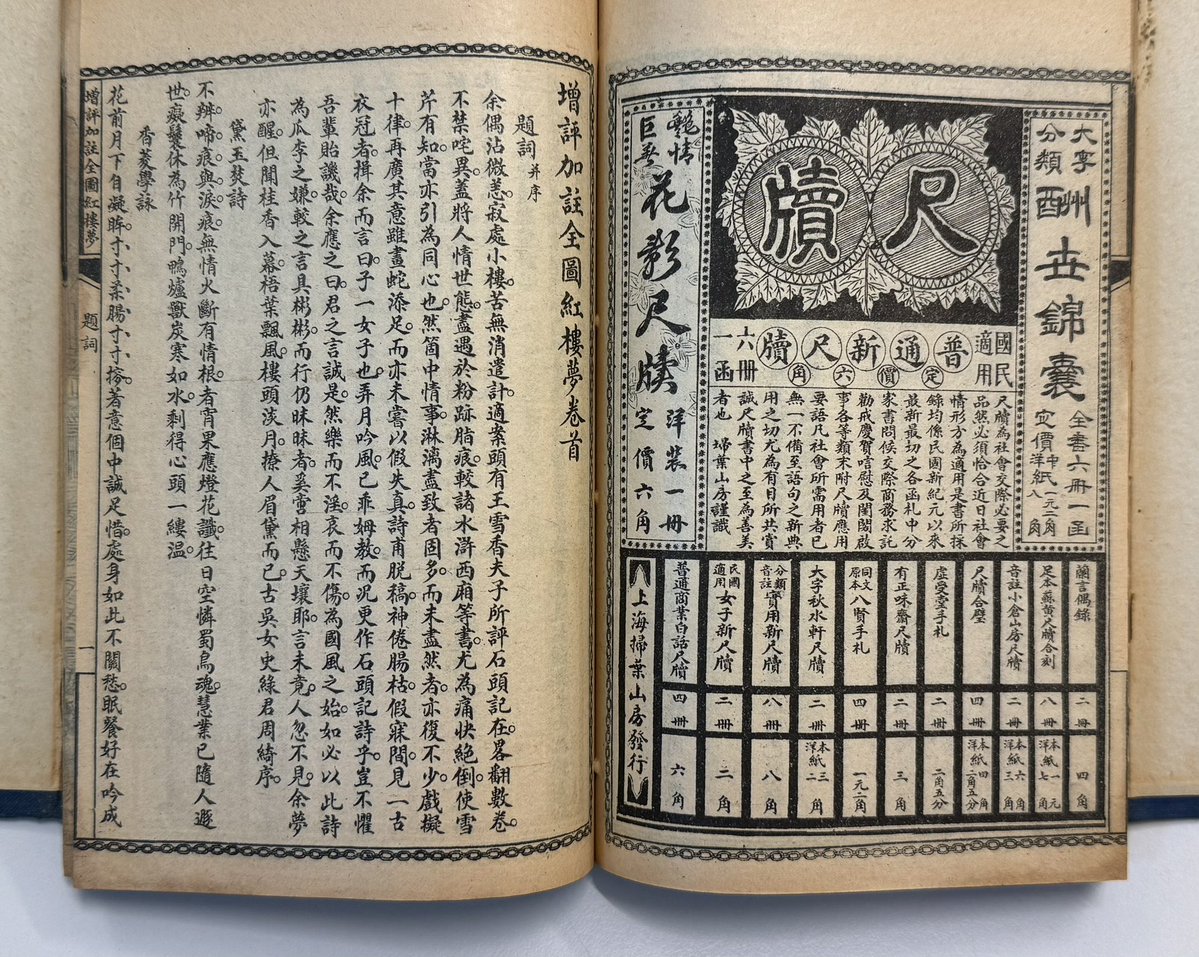 大字
分類
酬世錦囊
全書六冊一函
定價中紙一元二角
洋紙八角
尺牘
國民
適用
普通新尺牘
定價六角
六冊
一函
尺牘為社會交際必要之
品然必須恰合近日社會
情形方為適用是書所採
錄均係民國新紀元以來
最新最切之各函札中分
家書問候交際商務求託
勸戒慶賀唁慰及閨閣啟
事各等類末附尺牘應用
要語凡社會所需用者已
無一不備至語句之新典
用之切尤為有目所共賞
誠尺牘書中之至為善美
者也 掃葉山房謹識
艷情
巨著
花影尺牘
洋裝一冊
定價六角
蘭言偶錄 二冊 四角
足本蘇黃尺牘合刻 八冊 本紙一元 洋紙七角
音註小倉山房尺牘 二冊 本紙六角 洋紙三角
尺牘合璧 四冊 本紙四角 洋紙二角五分
虛受堂手札 二冊 二角五分
有正味齋尺牘 二冊 三角
同文原本八賢手札 四冊 一元二角
大字秋水軒尺牘 二冊 本紙三角 洋紙二角
分類音註實用新尺牘 八冊 八角
民國適用女子新尺牘 二冊 二角
普通商業白話尺牘 四冊 六角
上海掃葉山房發行
增評加註全圖紅樓夢卷首
題詞 并序
余偶沾微恙寂處小樓苦無消遣計適案頭有王雪香夫子所評石頭記在畧翻數卷
不禁咤異蓋將人情世態盡遇於粉跡脂痕較諸水滸西廂等書尤為痛快絕倒使雪
芹有知當亦引為同心也然箇中情事淋漓盡致者固多而未盡然者亦復不少戲擬
十律再廣其意雖畫蛇添足而亦未嘗以假失真詩甫脫稿神倦腸枯假寐間見一古
衣冠者揖余而言曰子一女子也弄月吟風已乖姆教而況更作石頭記詩乎豈不懼
吾輩貽譏哉余應之曰君之言誠是然樂而不淫哀而不傷為國風之始如必以此詩
為瓜李之嫌較之言具彬彬而行仍昧昧者奚啻相懸天壤耶言未竟人忽不見余夢
亦醒但聞桂香入幕梧葉飄風樓頭淡月撩人眉黛而已古吳女史綠君周綺序
黛玉焚詩
不辨啼痕與淚痕無情火斷有情根者宵果應燈花讖往日空憐蜀鳥魂慧業已隨人遯
世癡鬟休為竹開門鴨爐獸炭寒如水剩得心頭一縷溫
香菱學詠
花前月下自凝眸寸寸柔腸寸寸搜著意個中誠足惜處身如此不關愁眠餐好在吟成
增評加註全圖紅樓夢
題詞
一